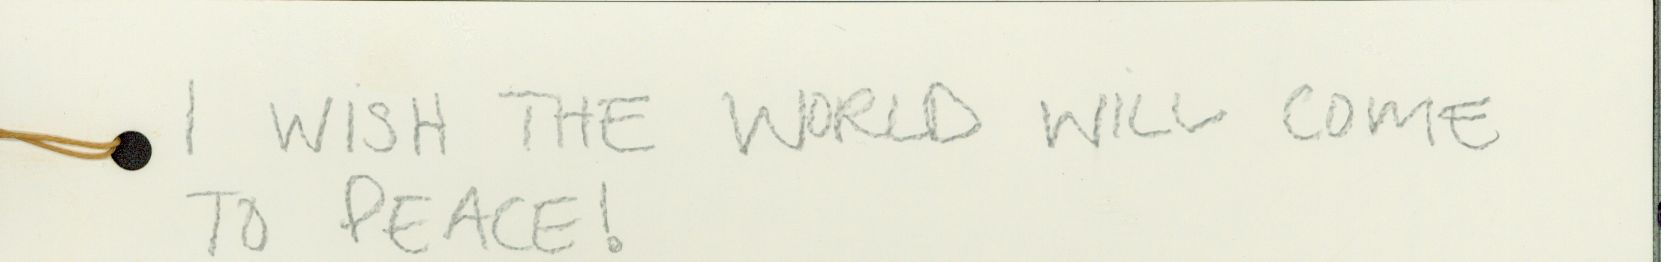 I WISH THE WORLD WILL COME
TO PEACE!